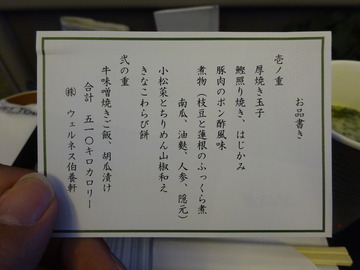 お品書き
壱ノ重
厚焼き玉子
鰹照り焼き、はじかみ
豚肉のポン酢風味
煮物（枝豆と蓮根のふっくら煮
南瓜、油麩、人参、隠元）
小松菜とちりめん山椒和え
きなこわらび餅
弐の重
牛味噌焼きご飯、胡瓜漬け
合計　五一〇キロカロリー
㈱　ウェルネス伯養軒